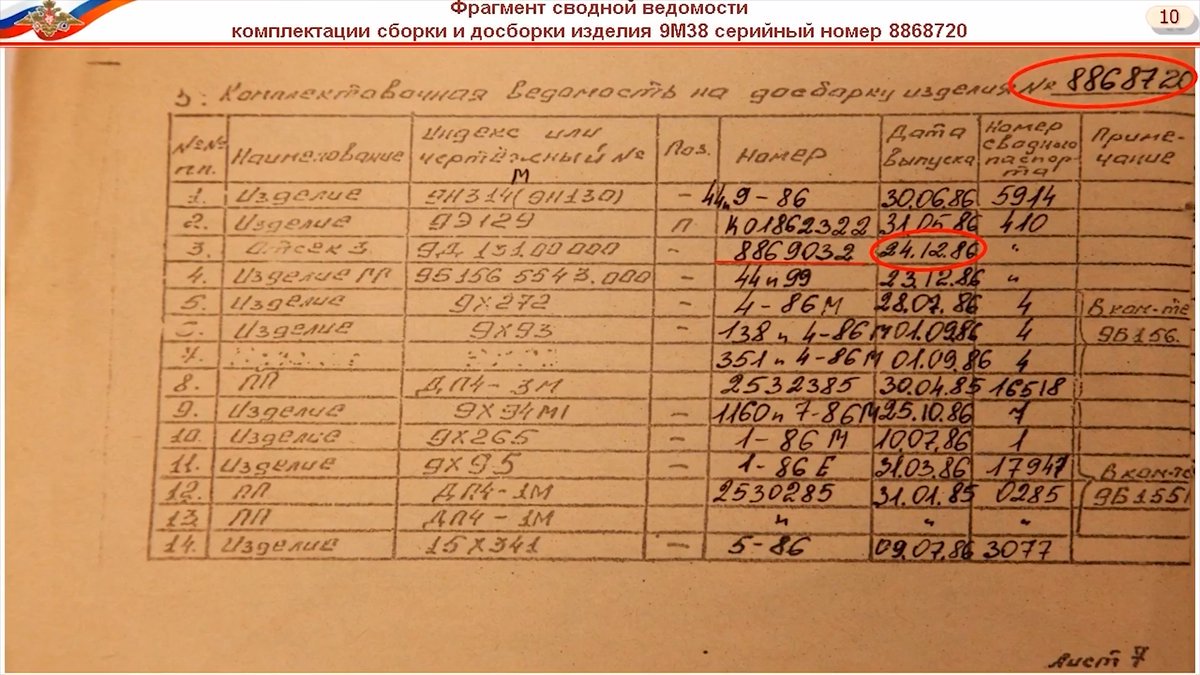 Фрагмент сводной ведомости
комплектации сборки и досборки изделия 9М38 серийный номер 8868720
10
3. Комплектовочная ведомость на досборку изделия № 8868720
№№ п.п. Наименование Индекс или чертёжный № Поз. Номер Дата выпуска Номер сводного паспорта Примечание
1. Изделие 9Н314М(9Н130) — 44п9-86 30.06.86 5914
2. Изделие 9Э129 П. К01862322 31.05.86 410
3. Отсек 3 9Д.131.00000 - 8869032 24.12.86 "
4. Изделие ПП 9Б156 5543.000 - 44п99 23.12.86 "
5. Изделие 9Х272 - 4-86М 28.07.86 4 В ком-те
Изделие 9Х93 - 138п4-86М 01.09.86 4 9Б156.
7. 351п4-86М 01.09.86 4
8. ПП ДП4-3М 2532385 30.04.85 16518
9. Изделие 9Х94М1 - 1160п7-86М 25.10.86 7
10. Изделие 9Х265 - 1-86М 10.07.86 1
11. Изделие 9Х95 - 1-86Е 31.03.86 17947 В ком-те
12. ПП ДП4-1М 2530285 31.01.85 0285 9Б155
13. ПП ДП4-1М " " "
14. Изделие 15Х341 — 5-86 09.07.86 3077
Лист 7